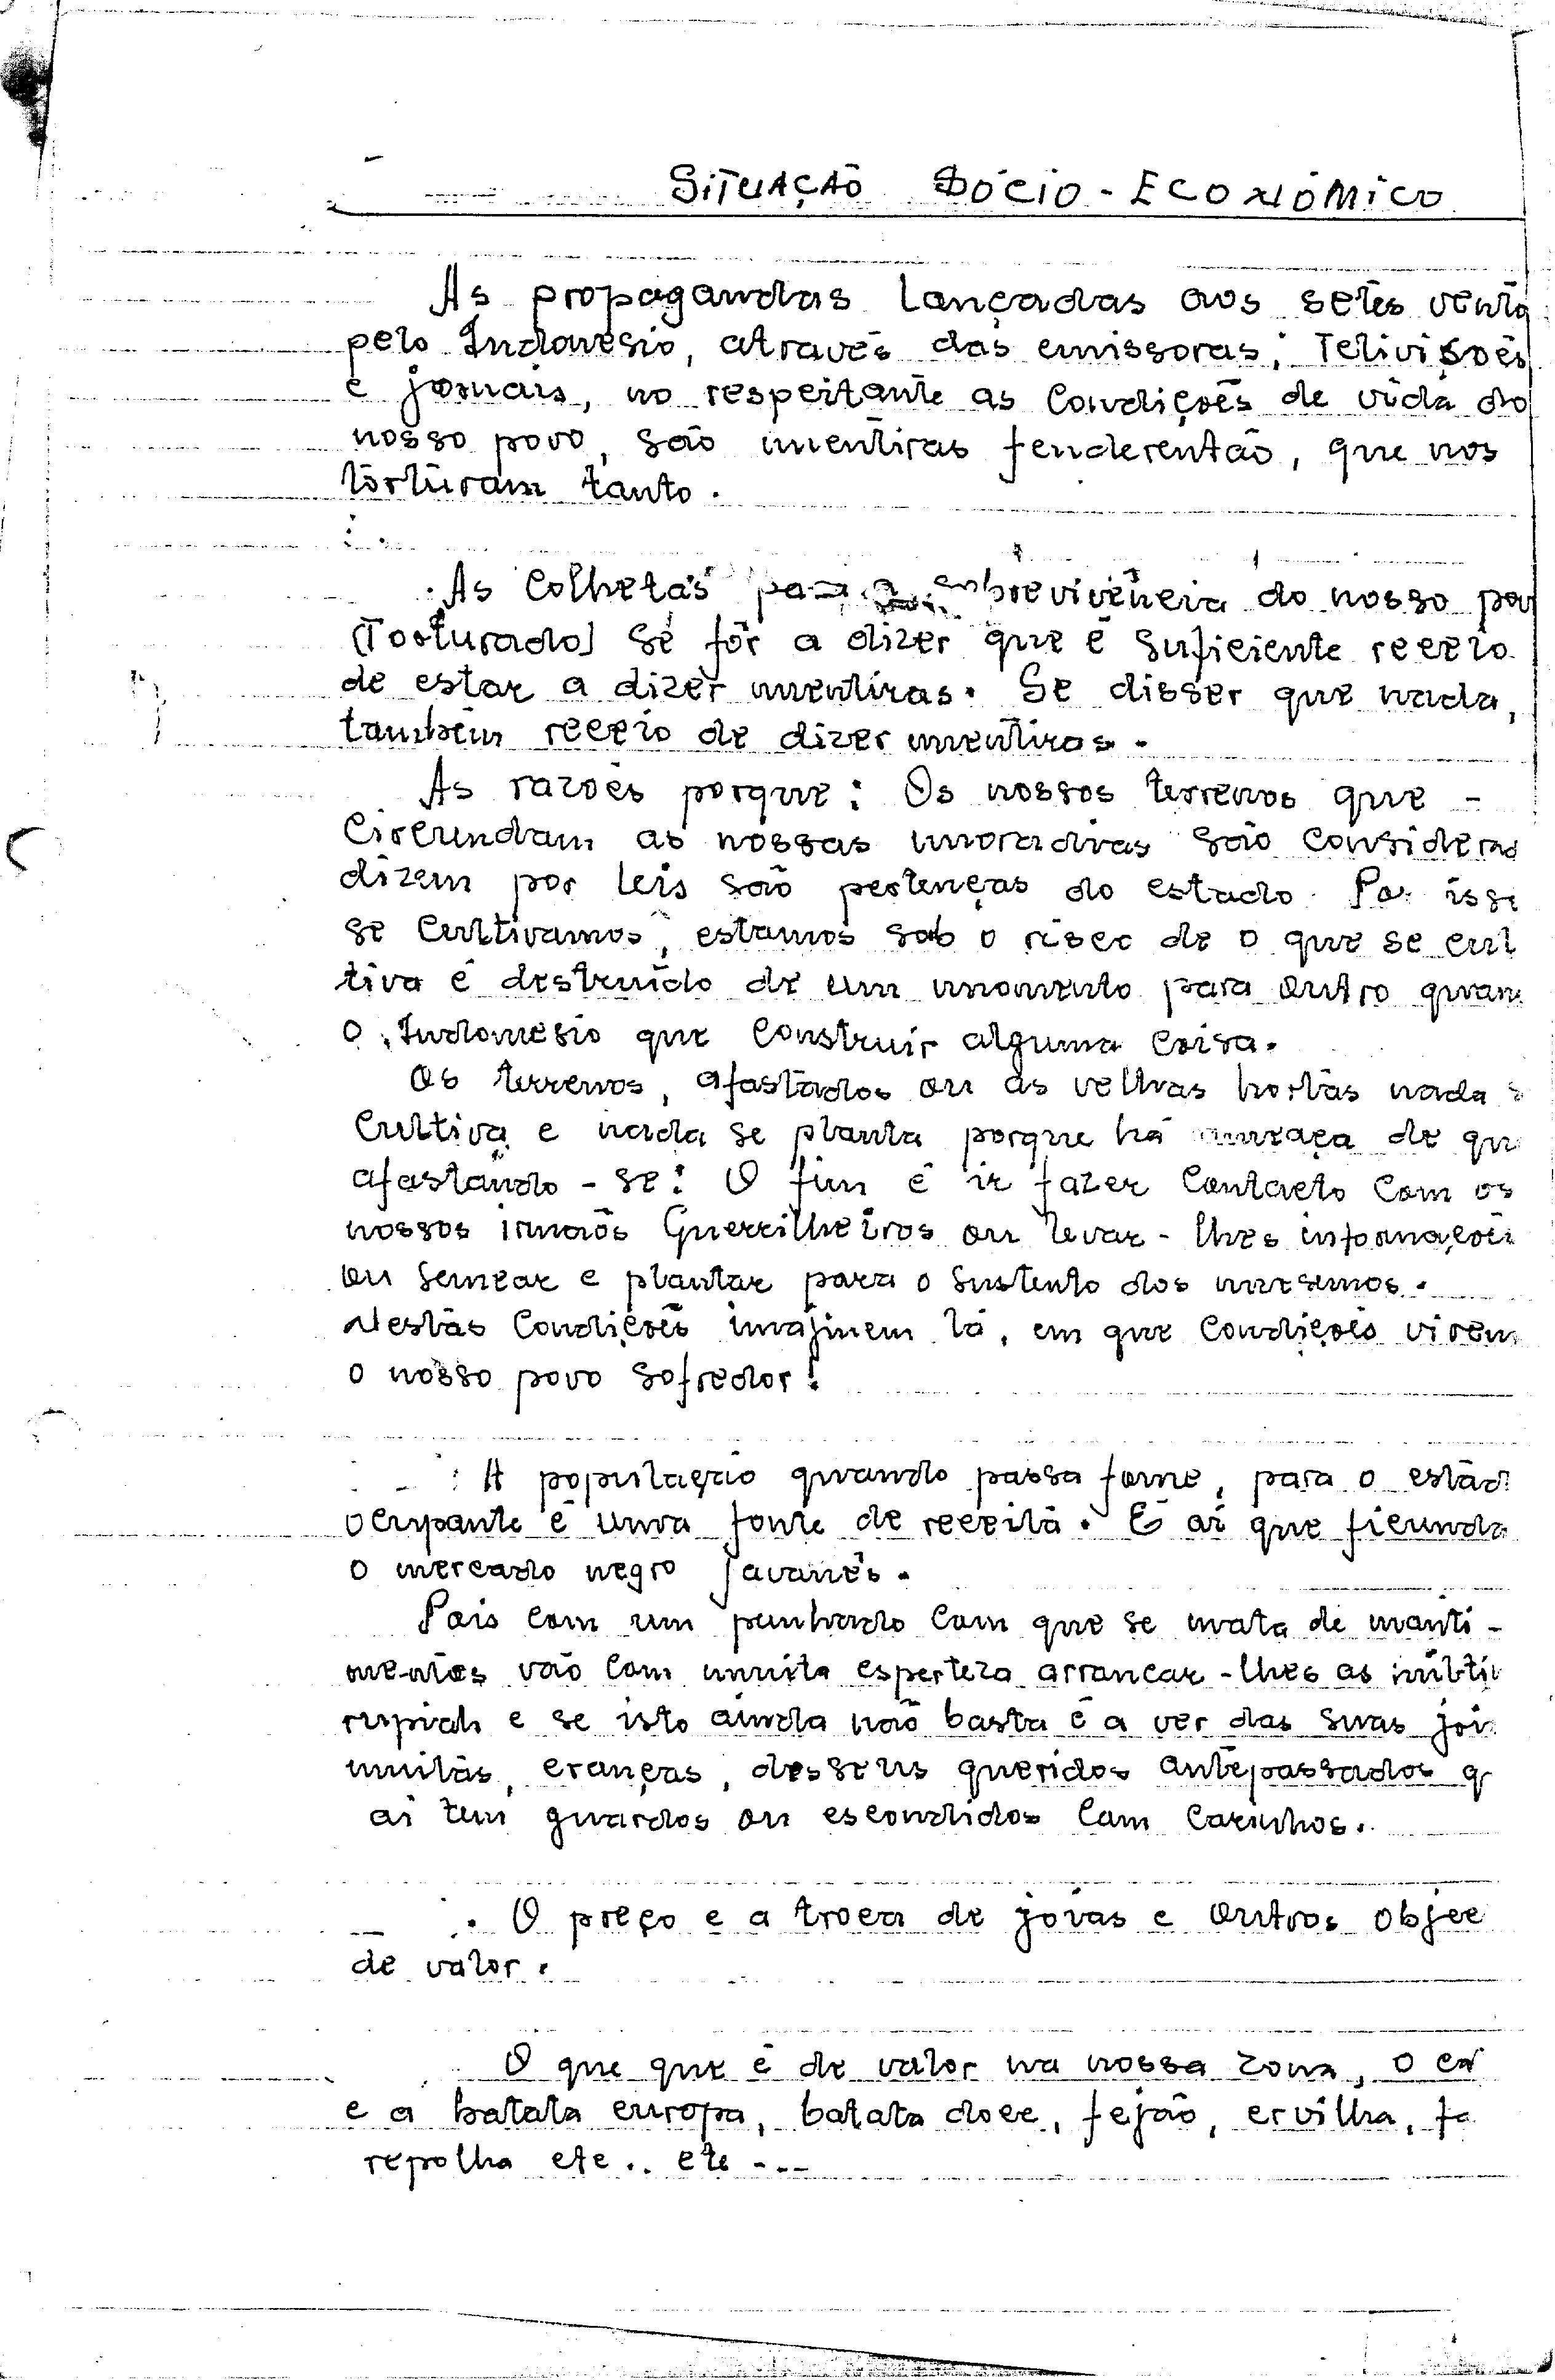 SITUAÇÃO SÓCIO-ECONÓMICO
As propagandas lançadas aos setes vento
pelo Indonésio, através das emissoras, Telivisões
e jornais, no respeitante as condições de vida do
nosso povo, são mentiras fenderentão, que nos
torturam tanto.
As colhetas para a sobrevivência do nosso pov
(Torturado) se fôr a dizer que é suficiente receio
de estar a dizer mentiras. Se disser que nada,
também receio de dizer mentiras.
As razões porque: Os nossos terrenos que -
circundam as nossas moradias são considerad
dizem por leis são pertenças do estado. Por isso
se cultivamos, estamos sob o risco de o que se cul
tiva é destruído de um momento para outro quan
o Indonésio que construir alguma coisa.
Os terrenos, afastados ou as velhas hortas nada s
cultiva e nada se planta porque há ameaça de qu
afastando-se: O fim é ir fazer contacto com os
nossos irmãos Guerrilheiros ou levar-lhes informaçõe
ou semear e plantar para o sustento dos mesmos.
Nestas condições imajinem lá, em que condições vivem
o nosso povo sofredor!
A população quando passa fome, para o estad
ocupante é uma fonte de receita. E aí que ficunda
o mercado negro Javanês.
Pois com um punhado com que se mata de manti-
mentos vão com muita esperteza arrancar-lhes as
rupiah e se isto ainda não basta é a ver das suas joi
muitas, eranças, desseus queridos antepassados q
ai tem guardos ou escondidos com carinhos.
O preço e a troca de joias e outros objec
de valor.
O que que é de valor na nossa zona, o ca
e a batata europa, batata doce, fejão, ervilha, fa
repolha etc.. etc ---